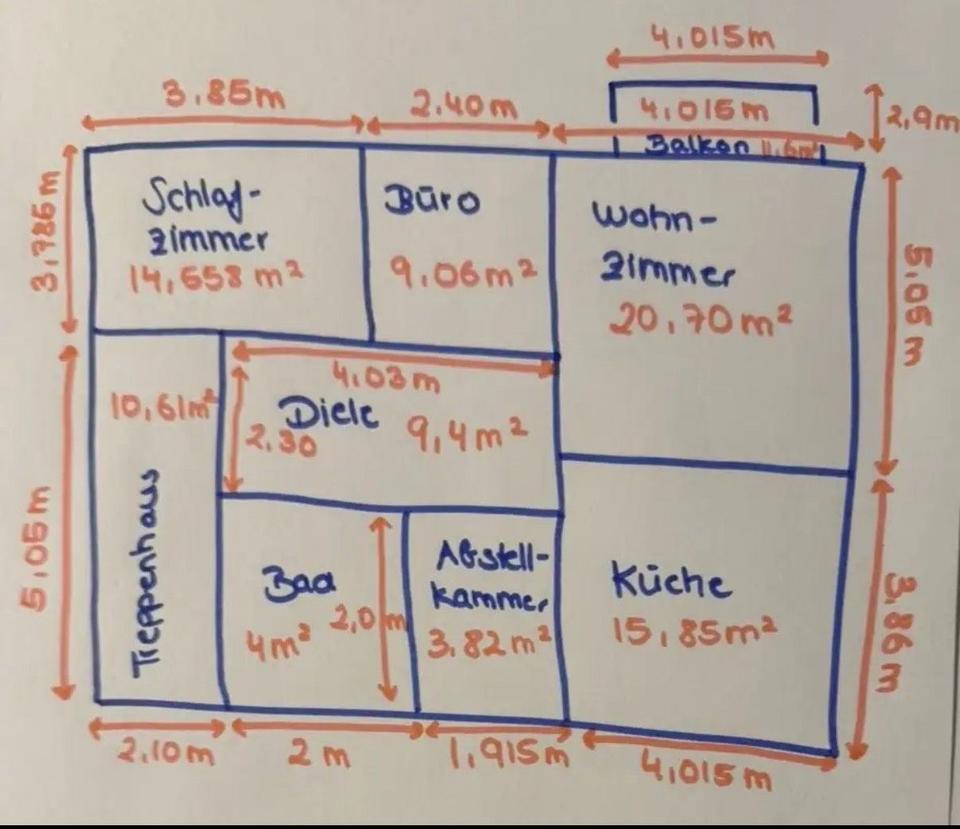 4,015m
3.85m
2.40m
4,015m
2,9m
Balkon 11,6m²
Schlaf-
zimmer
14,658 m²
Büro
9,06m²
Wohn-
zimmer
20,70m²
3,785m
5,05m
4,03m
Diele
9,4m²
2,30
10,61m²
Treppenhaus
5,05m
Bad
4m²
2,0m
Abstell-
kammer
3,82m²
Küche
15,85m²
3,86m
2,10m
2m
1,915m
4,015m